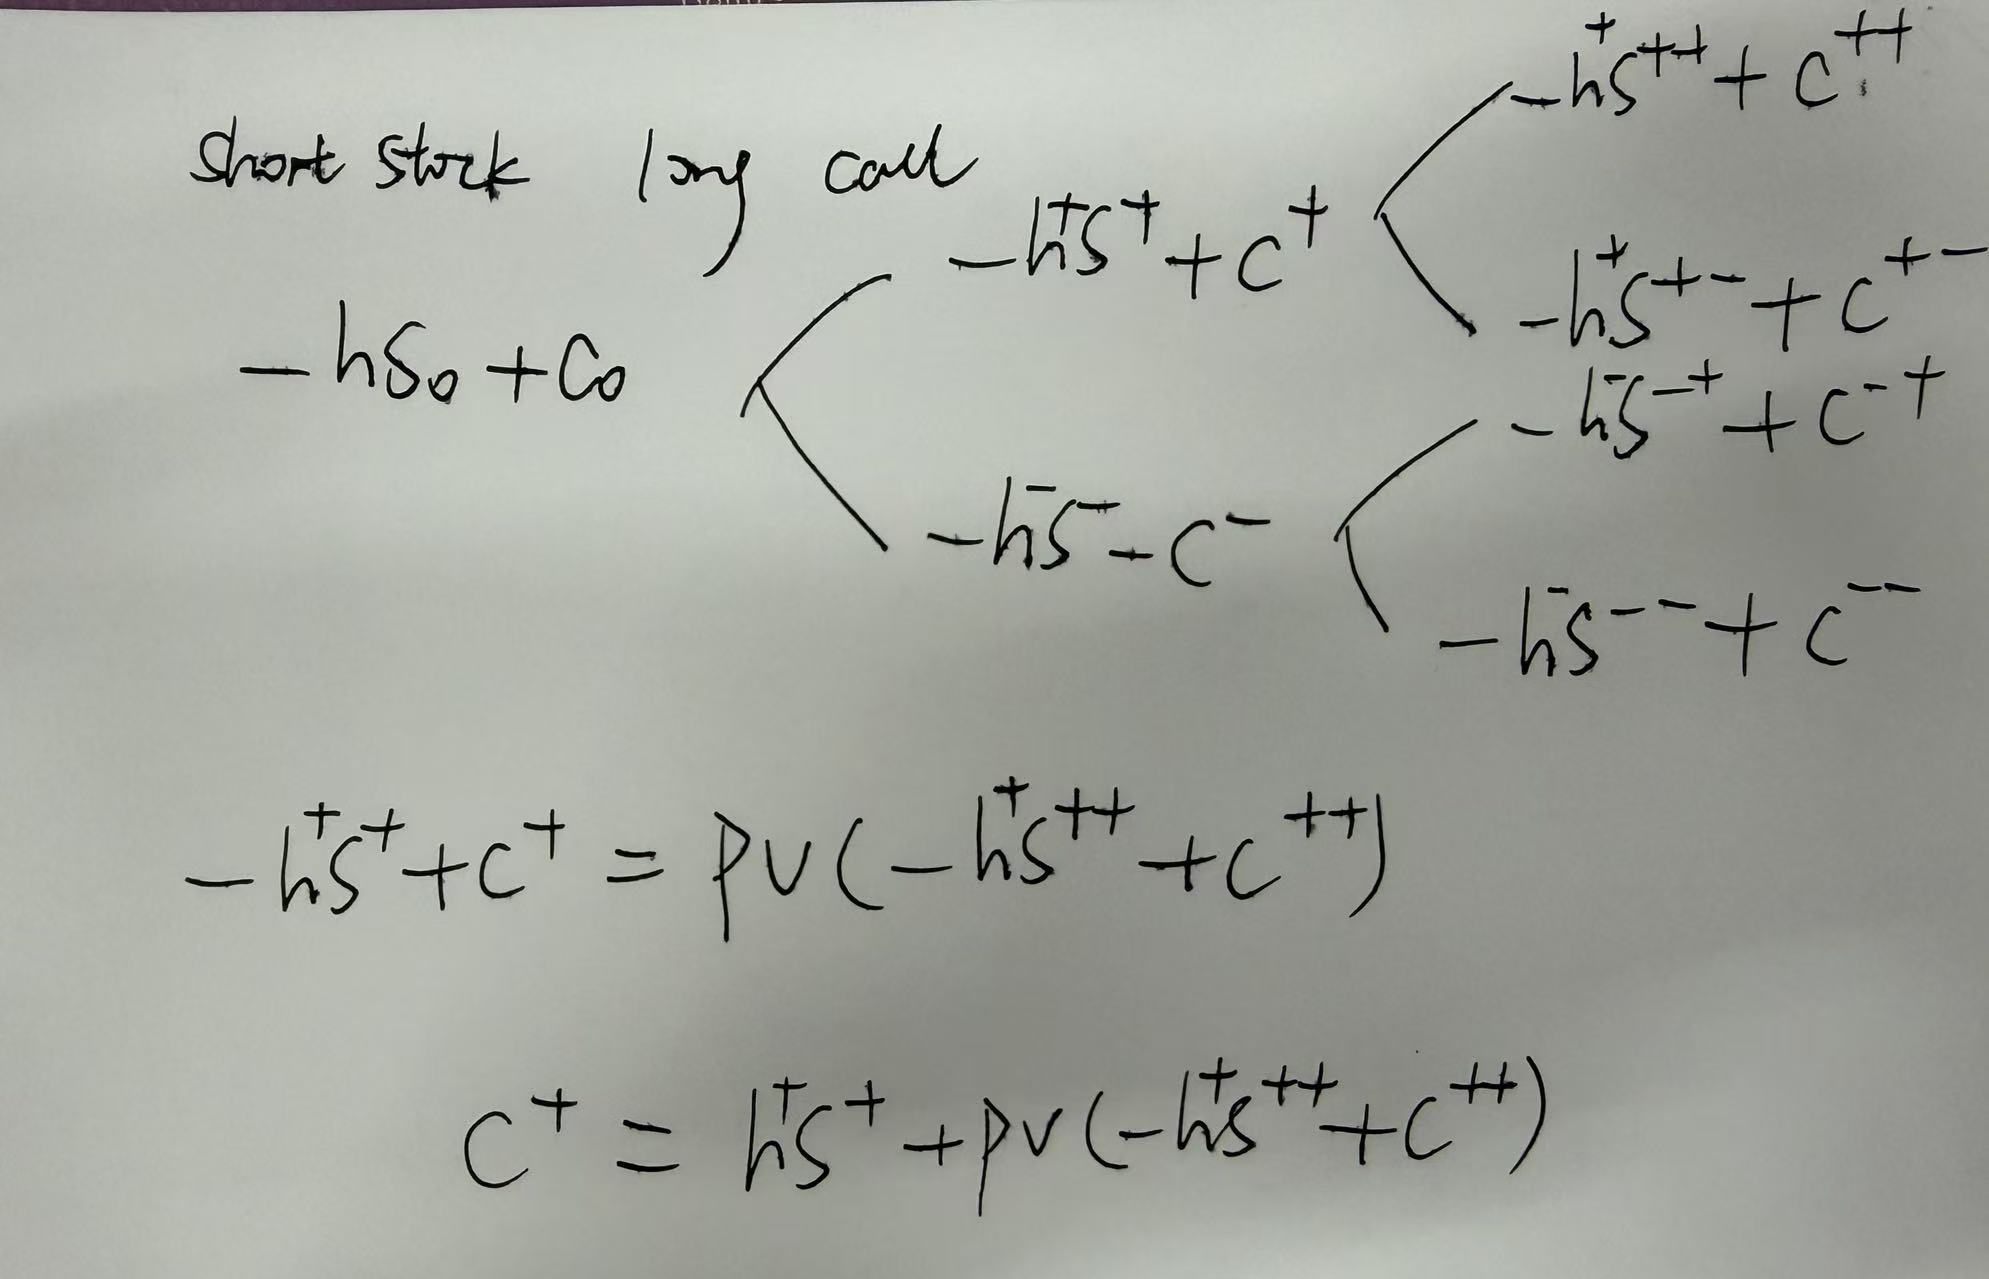 short stock long call
-hS₀+C₀
-h⁺S⁺+C⁺
-h⁻S⁻-C⁻
-h⁺S⁺⁺+C⁺⁺
-h⁺S⁺⁻+C⁺⁻
-h⁻S⁻⁺+C⁻⁺
-h⁻S⁻⁻+C⁻⁻
-h⁺S⁺+C⁺=PV(-h⁺S⁺⁺+C⁺⁺)
C⁺=h⁺S⁺+PV(-h⁺S⁺⁺+C⁺⁺)